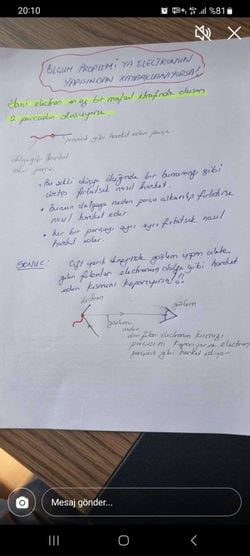 20:10
%81
BİLİM PROBLEMİ YA ELECTRONUN
YAPISINDAN KAYNAKLANIYORSA!
Yani electron en az bir mafsal etrafında dönen
2 parçadan oluşuyorsa.
parçacık gibi hareket eden parça
dalga gibi hareket
eden parça
• Bu şekli dünya ölçeğinde bir bumerang gibi
üretip fırlatırsak nasıl hareket.
• Bunun dalgaya neden parça alkarılıp fırlatılırsa
nasıl hareket eder
• Her bir parçayı ayrı ayrı fırlatsak nasıl
hareket eder.
SONUÇ: Çift yarık deneyinde gözlem yapan cihaza
gelen fotonlar electronun dalga gibi hareket
eden kısmını koparıyorsa!!
electron
gözlem
gözlemi
neden
olan foton electronun kırmızı
parçasını koparıyorsa electron
parçacık gibi hareket ediyor
Mesaj gönder...